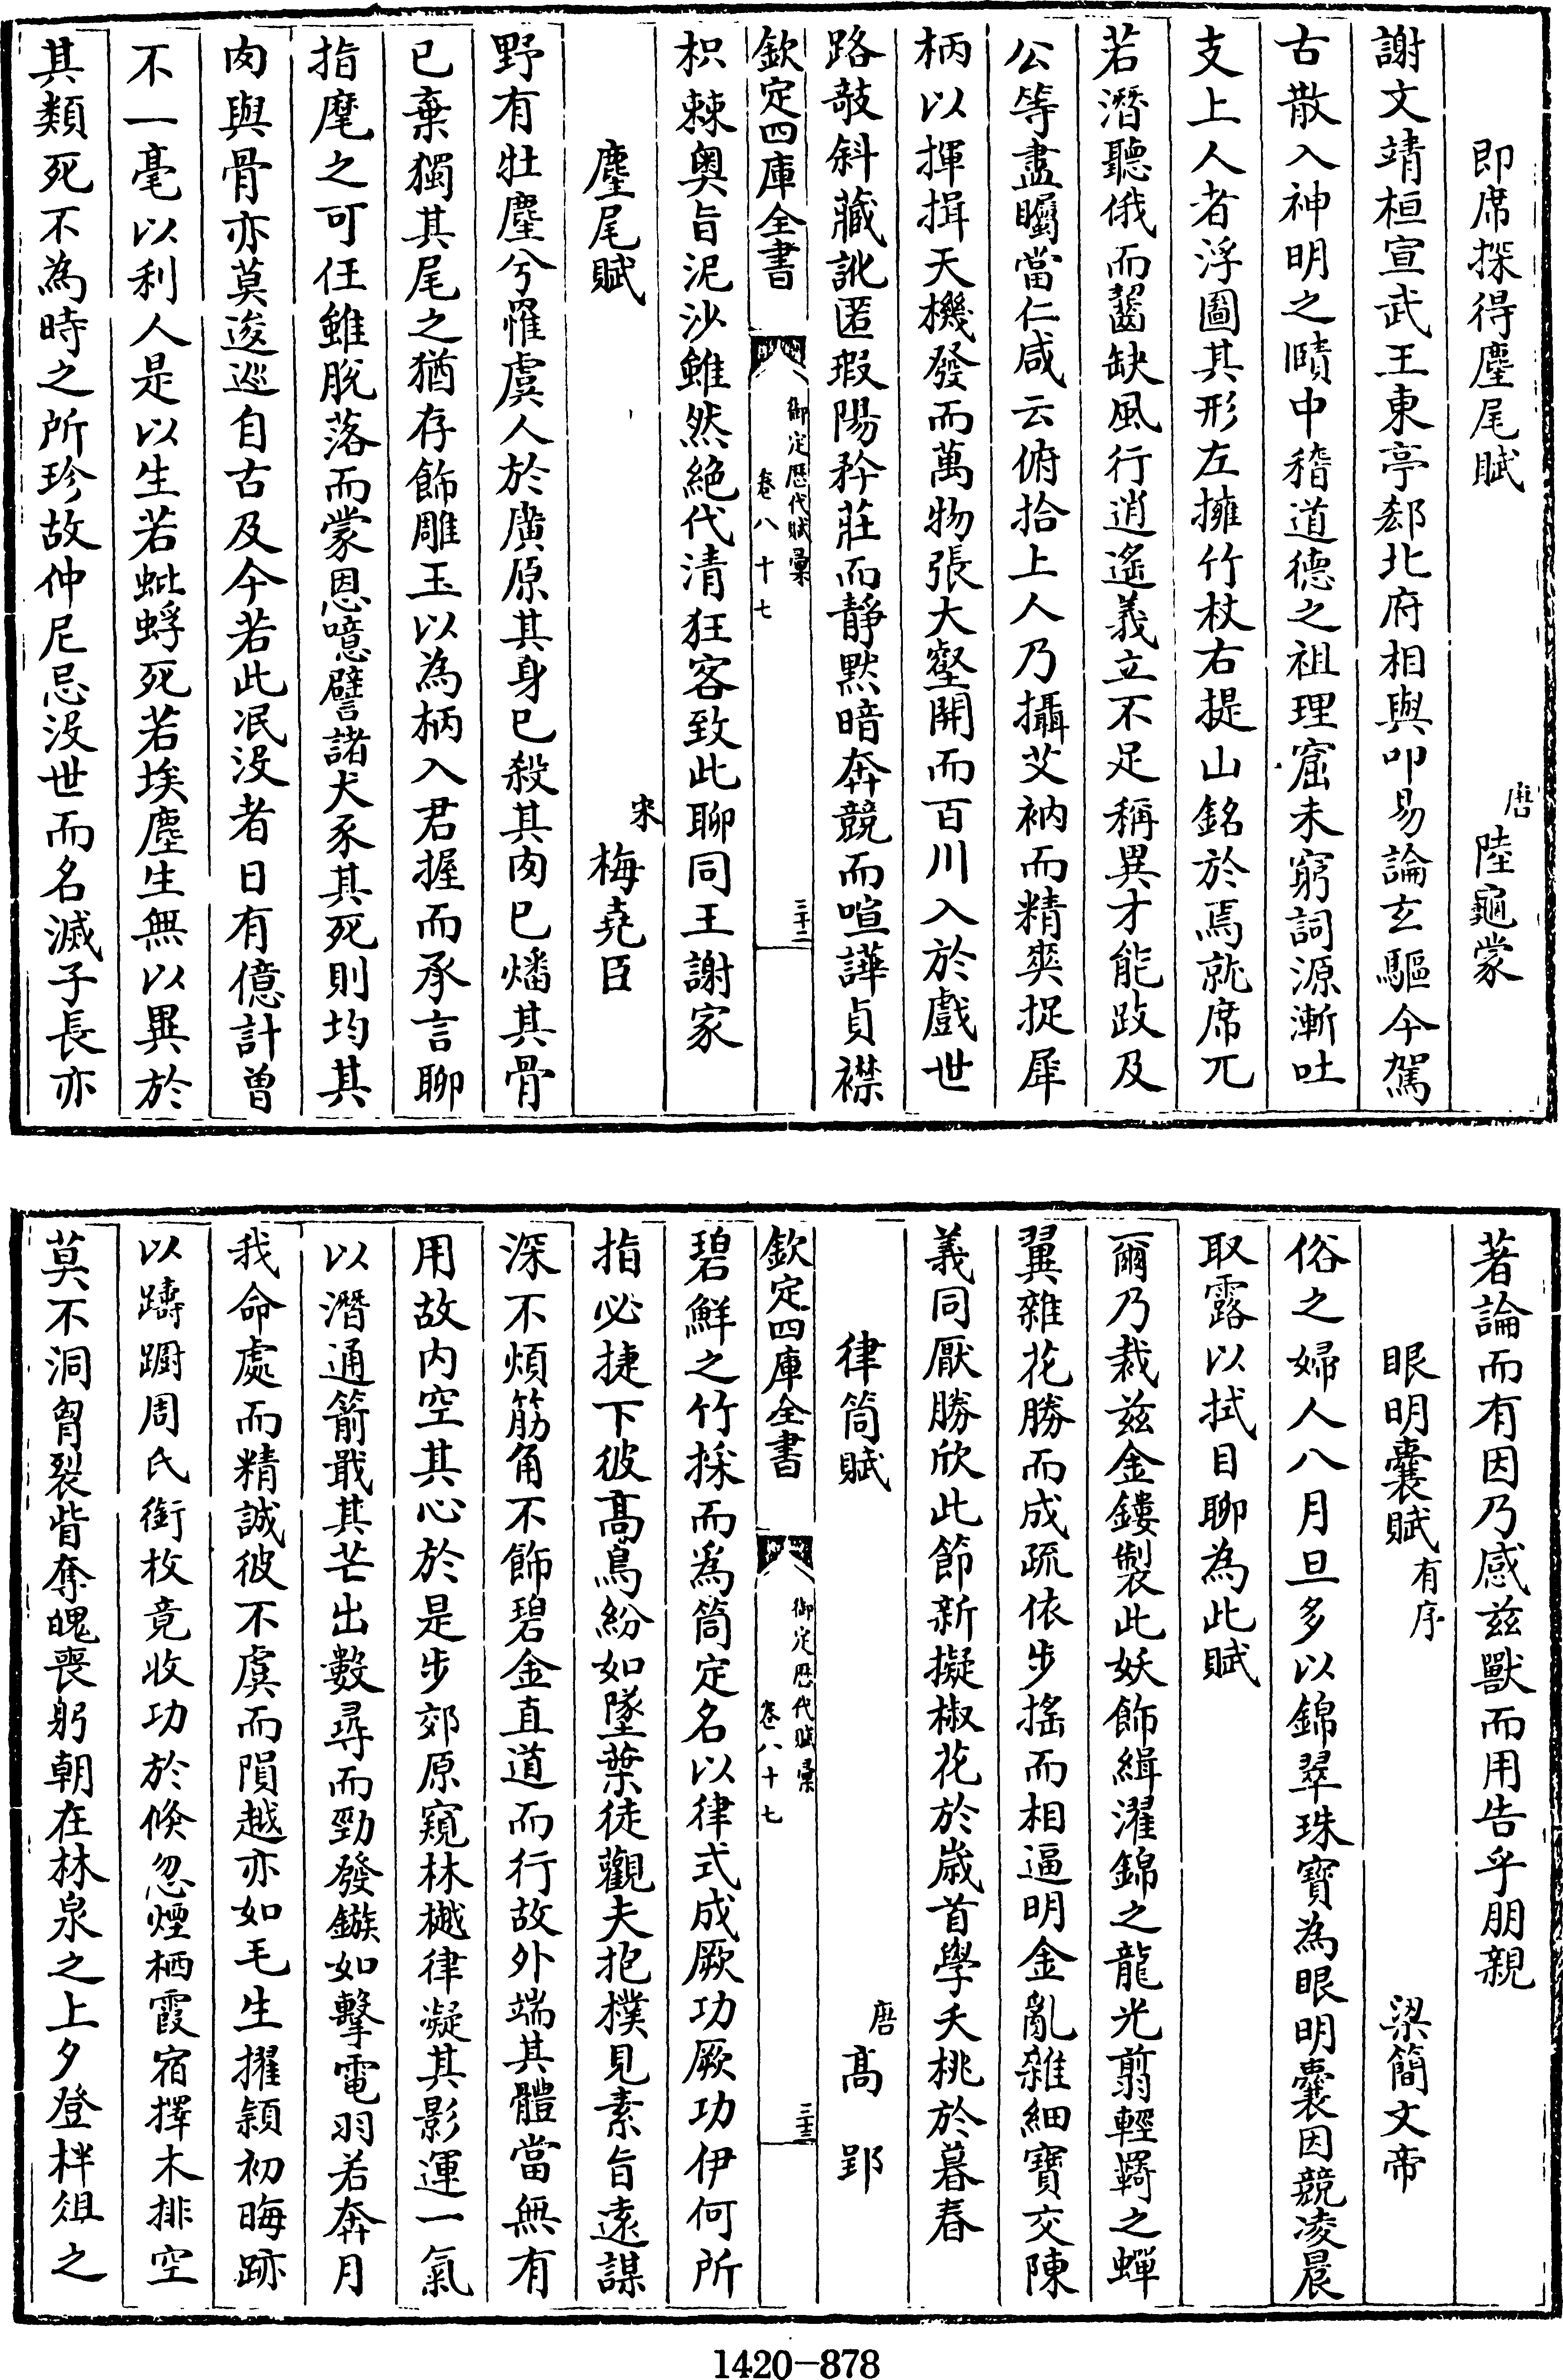 即席探得麈尾賦 唐 陸龜蒙
謝文靖桓宣武王東亭郄北府相與叩易論玄驅今駕
古散入神明之賾中稽道德之祖理窟未窮詞源漸吐
支上人者浮圖其形左擁竹杖右提山銘於焉就席兀
若潛聽俄而齾缺風行逍遙義立不足稱異才能跂及
公等盡矚當仁咸云俯拾上人乃攝艾衲而精爽捉犀
柄以揮揖天機發而萬物張大壑開而百川入於戲世
路攲斜藏訛匿瑕陽矜莊而靜默暗奔競而喧譁貞襟
欽定四庫全書 御定歷代賦彙 卷八十七 三十二
枳棘奥旨泥沙雖然絶代清狂客致此聊同王謝家
麈尾賦 宋 梅堯臣
野有牡麈兮罹虞人於廣原其身已殺其肉已燔其骨
已棄獨其尾之猶存飾雕玉以為柄入君握而承言聊
指麾之可任雖脫落而蒙恩噫譬諸犬豕其死則均其
肉與骨亦莫逡巡自古及今若此泯没者日有億計曽
不一毫以利人是以生若蚍蜉死若埃塵生無以異於
其類死不為時之所珍故仲尼忌没世而名滅子長亦
著論而有因乃感兹獸而用告乎朋親
眼明囊賦 有序 梁簡文帝
俗之婦人八月旦多以錦翠珠寶為眼明囊因競凌晨
取露以拭目聊為此賦
爾乃裁兹金鏤製此妖飾緝濯錦之龍光翦輕羇之蟬
翼雜花勝而成疏依步搖而相逼明金亂雜細寶交陳
義同厭勝欣此節新擬椒花於嵗首學夭桃於暮春
律筒賦 唐 高郢
欽定四庫全書 御定歷代賦彙 卷八十七 三十三
碧鮮之竹採而為筒定名以律式成厥功厥功伊何所
指必捷下彼高鳥紛如墜葉徒觀夫抱樸見素旨遠謀
深不煩筋角不飾碧金直道而行故外端其體當無有
用故内空其心於是步郊原窺林樾律凝其影運一氣
以潛通箭戢其芒出數尋而勁發鏃如擊電羽若奔月
我命處而精誠彼不虞而隕越亦如毛生擢頴初晦跡
以躊蹰周氏銜枚竟收功於倏忽煙栖霞宿擇木排空
莫不洞胷裂眥奪魄喪躬朝在林泉之上夕登柈俎之
1420-878